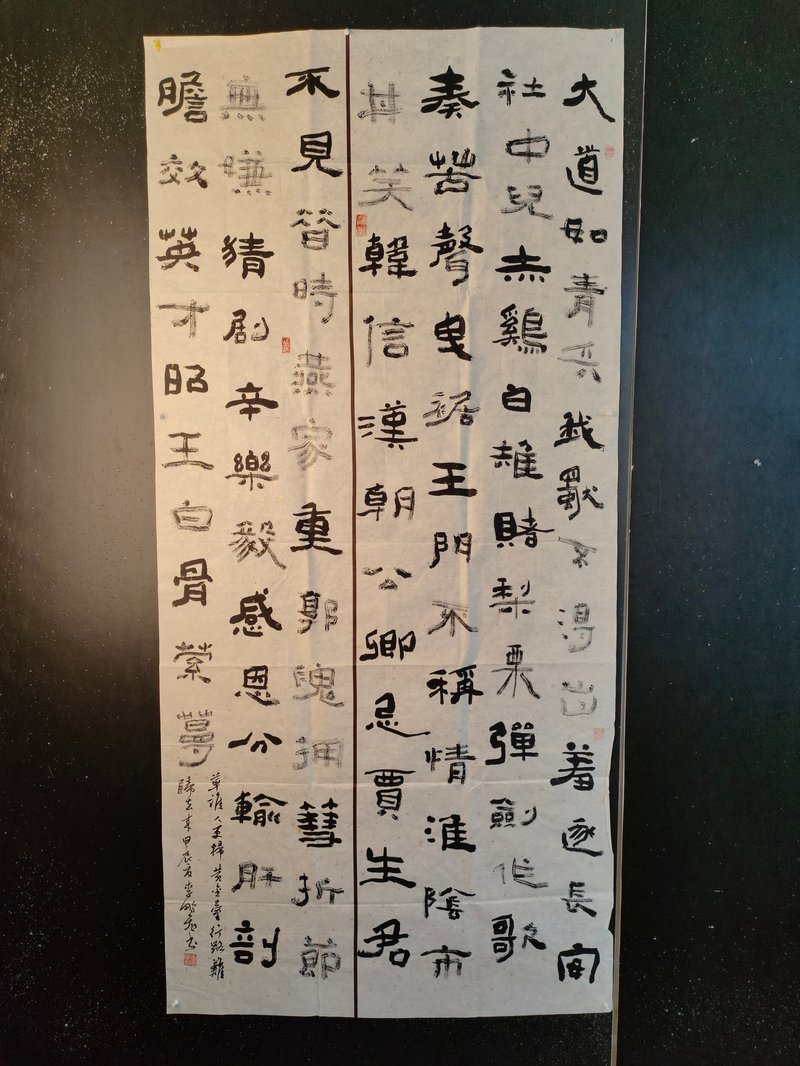 大道如青天我獨不得出羞逐長安
社中兒赤雞白雉賭梨栗彈劍作歌
奏苦聲曳裾王門不稱情淮陰市
井笑韓信漢朝公卿忌賈生君
不見昔時燕家重郭隗拥彗折節
無嫌猜劇辛樂毅感恩分輸肝剖
膽效英才昭王白骨縈蔓
草誰人更掃黃金臺行路難
歸去來甲辰李鵬書